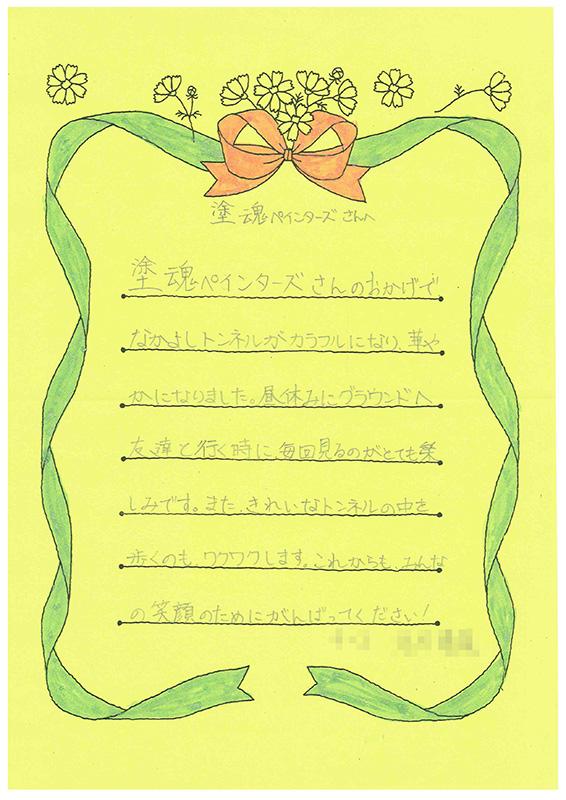 塗魂ペインターズさんへ
塗魂ペインターズさんのおかげで
なかよしトンネルがカラフルになり、華や
かになりました。昼休みにグラウンドへ
友達と行く時に、毎回見るのがとても楽
しみです。また、きれいなトンネルの中を
歩くのも、ワクワクします。これからも、みんな
の笑顔のためにがんばってください!